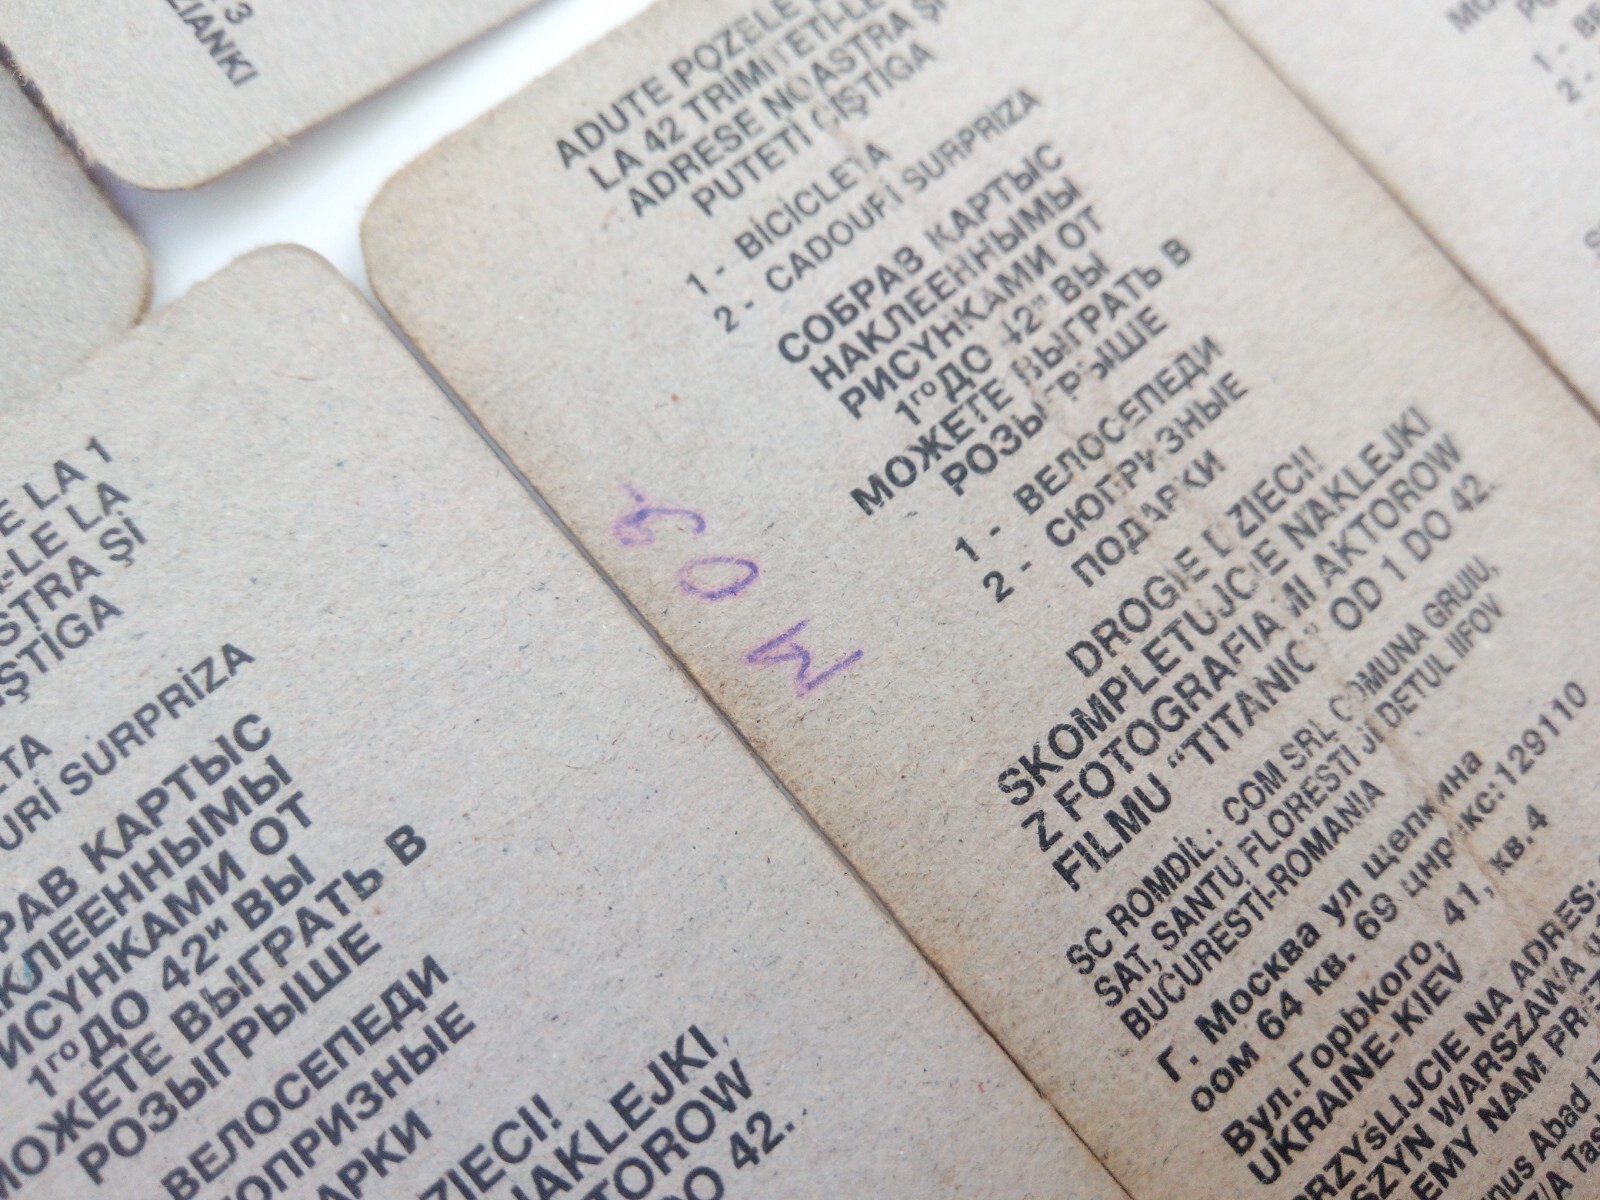 3
ZIANKI
ADUTE POZELE
LA 42 TRIMITETI-LE
ADRESE NOASTRA ŞI
PUTETI CIŞTİGA
1 - BİCİCLETA
2 - CADOURİ SURPRİZA
СОБРАВ КАРТЫС
НАКЛЕЕННЫМЫ
РИСУНКАМИ ОТ
1го ДО 42и ВЫ
МОЖЕТЕ ВЫГРАТЬ В
РОЗЫГРЫШЕ
1 - ВЕЛОСЕПЕДИ
2 - СЮПРИЗНЫЕ
ПОДАРКИ
DROGIE DZIECI!
SKOMPLETUJCIE NAKLEJKI
Z FOTOGRAFIAMI AKTOROW
FILMU "TITANIC" OD 1 DO 42.
SC ROMDİL: COM SRL COMUNA GRUIU,
SAT, SANTU FLORESTI JUDETUL IIFOV
BUCURESTI-ROMANIA
Г. Москва ул щепкина
оом 64 кв. 69 цнрекс:129110
Вул.Горького, 41, кв.4
UKRAINE-KIEV
PRZYŚLIJCIE NA ADRES:
SZYN WARSZAWA
EMY NAM
nus Abad
E LA 1
-LE LA
STRA ŞI
IŞTİGA
ETA
URİ SURPRİZA
РАВ КАРТЫС
КЛЕЕННЫМЫ
ИСУНКАМИ ОТ
1го ДО 42и ВЫ
МОЖЕТЕ ВЫГРАТЬ В
РОЗЫГРЫШЕ
ВЕЛОСЕПЕДИ
ЮПРИЗНЫЕ
АРКИ
ZIECI!
NAKLEJKI,
TOROW
DO 42.
1 -
2 -